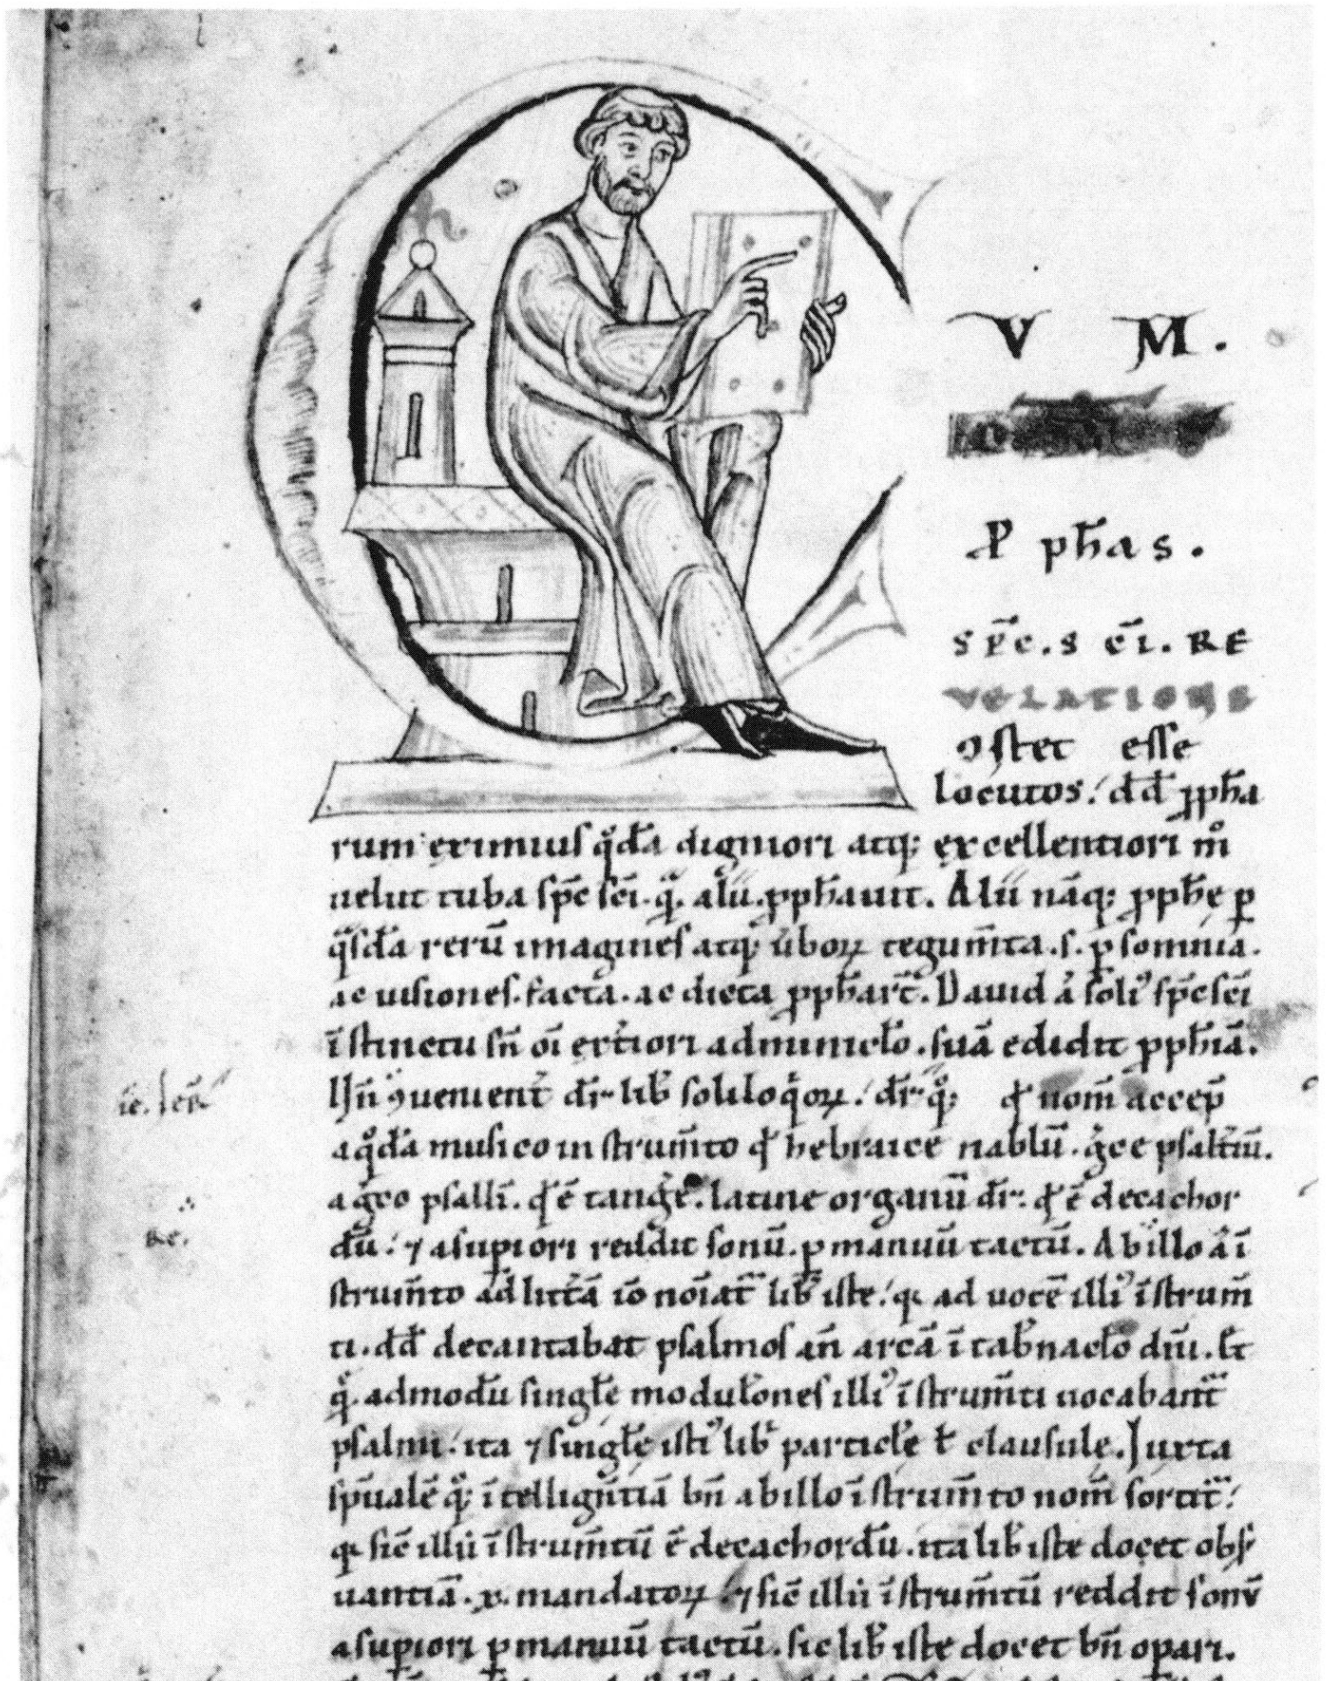 C
V M.
P ph̄as.
sp̄c. s c̄ı. RE
VELATIONE
ꝯstet esse
locutos. dd̄ ꝓph̄a
rum eximiuſ qͦda digniori atq; excellentiori mͦ
uelut tuba ſp̄c ſc̄i. qͣ. alii. ꝓph̄auit. Alii nāq; ꝓph̄ę ꝑ
qͣſda rerū imagineſ atq; ůboꝝ tegum̄ta. ſ. ꝑ ſomnia.
ac uiſiones. facta. ac dicta ꝓph̄art̄. Dauid aͥ ſoliꝰ ſp̄c ſc̄i
īſtinctu ſn̄ oı̄ ext̓iori adminicl̄o. ſuā edidit ꝓph̄iā.
Un̄ ꝯuenient̓ dr̄ lib̄ ſoliloqͥoꝝ. dr̄ qͦ; qͥ nom̄ accep̄
a qͦda muſico inſtrum̄to qͥ hebraice nablū. gͣce pſalt̓iū.
a gͣco pſallı̄. qͥ ē tang̓e. latine organū dr̄. qͥ ē decachor
dū. ⁊ a ſuꝑiori reddit ſonū. ꝑ manuū tactū. Ab illo aͥ ī
ſtrum̄to ad litt̓ā iō noı̄at̄ lib̄ iſte. qͥ ad uocē illiꝰ īſtrum̄
ti. dd̄ decantabat pſalmoſ an̄ arcā ī tab̄nacl̄o dn̄i. Et
qͣ. admodū ſingl̄ę modul̄oneſ illiꝰ īſtrum̄ti uocabant̄
pſalmi. ita ⁊ ſingl̄ę iſtiꝰ lib̄ particl̄ę ł clauſulę. Iuxta
ſp̄ualē qͦ; ītellign̄tiā bn̄ ab illo īſtrum̄to nom̄ ſortit̄.
qͥ ſic̄ illū īſtrum̄tū ē decachordū. ita lib̄ iſte docet obſ̓
uantiā. x. mandatoꝝ. ⁊ ſic̄ illū īſtrum̄tū reddit ſonū
a ſuꝑiori ꝑ manuū tactū. ſic lib̄ iſte docet bn̄ oꝑari.